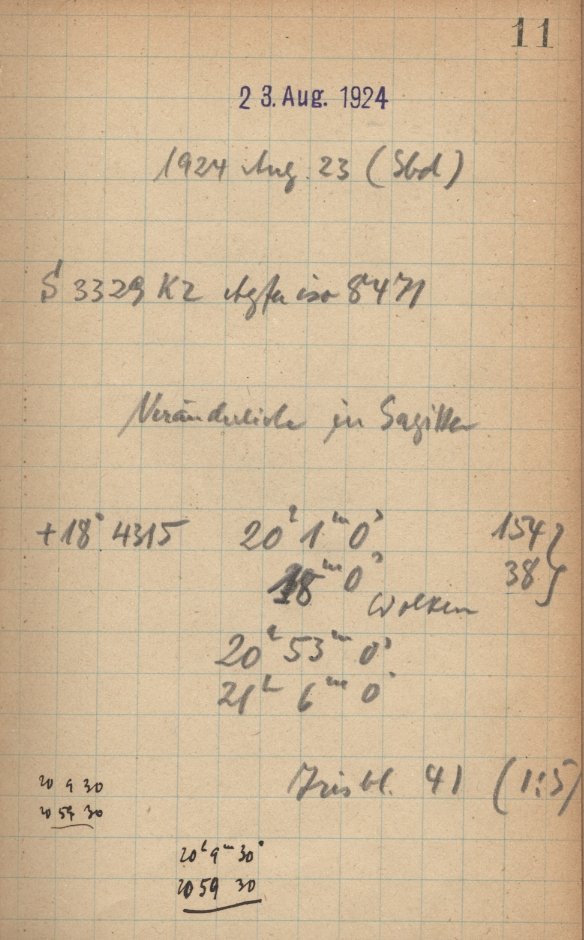 11
23. Aug. 1924
1924 Aug. 23 (Sbd)
S 3329 K2 Agfa iso 8471
Veränderliche in Sagitta
+18° 4315 20h 1m 0s 154
18m 0s 38
Wolken
20h 53m 0s
21h 6m 0s
Irisbl. 41 (1:5)
20 9 30
20 59 30
20h 9m 30s
20 59 30